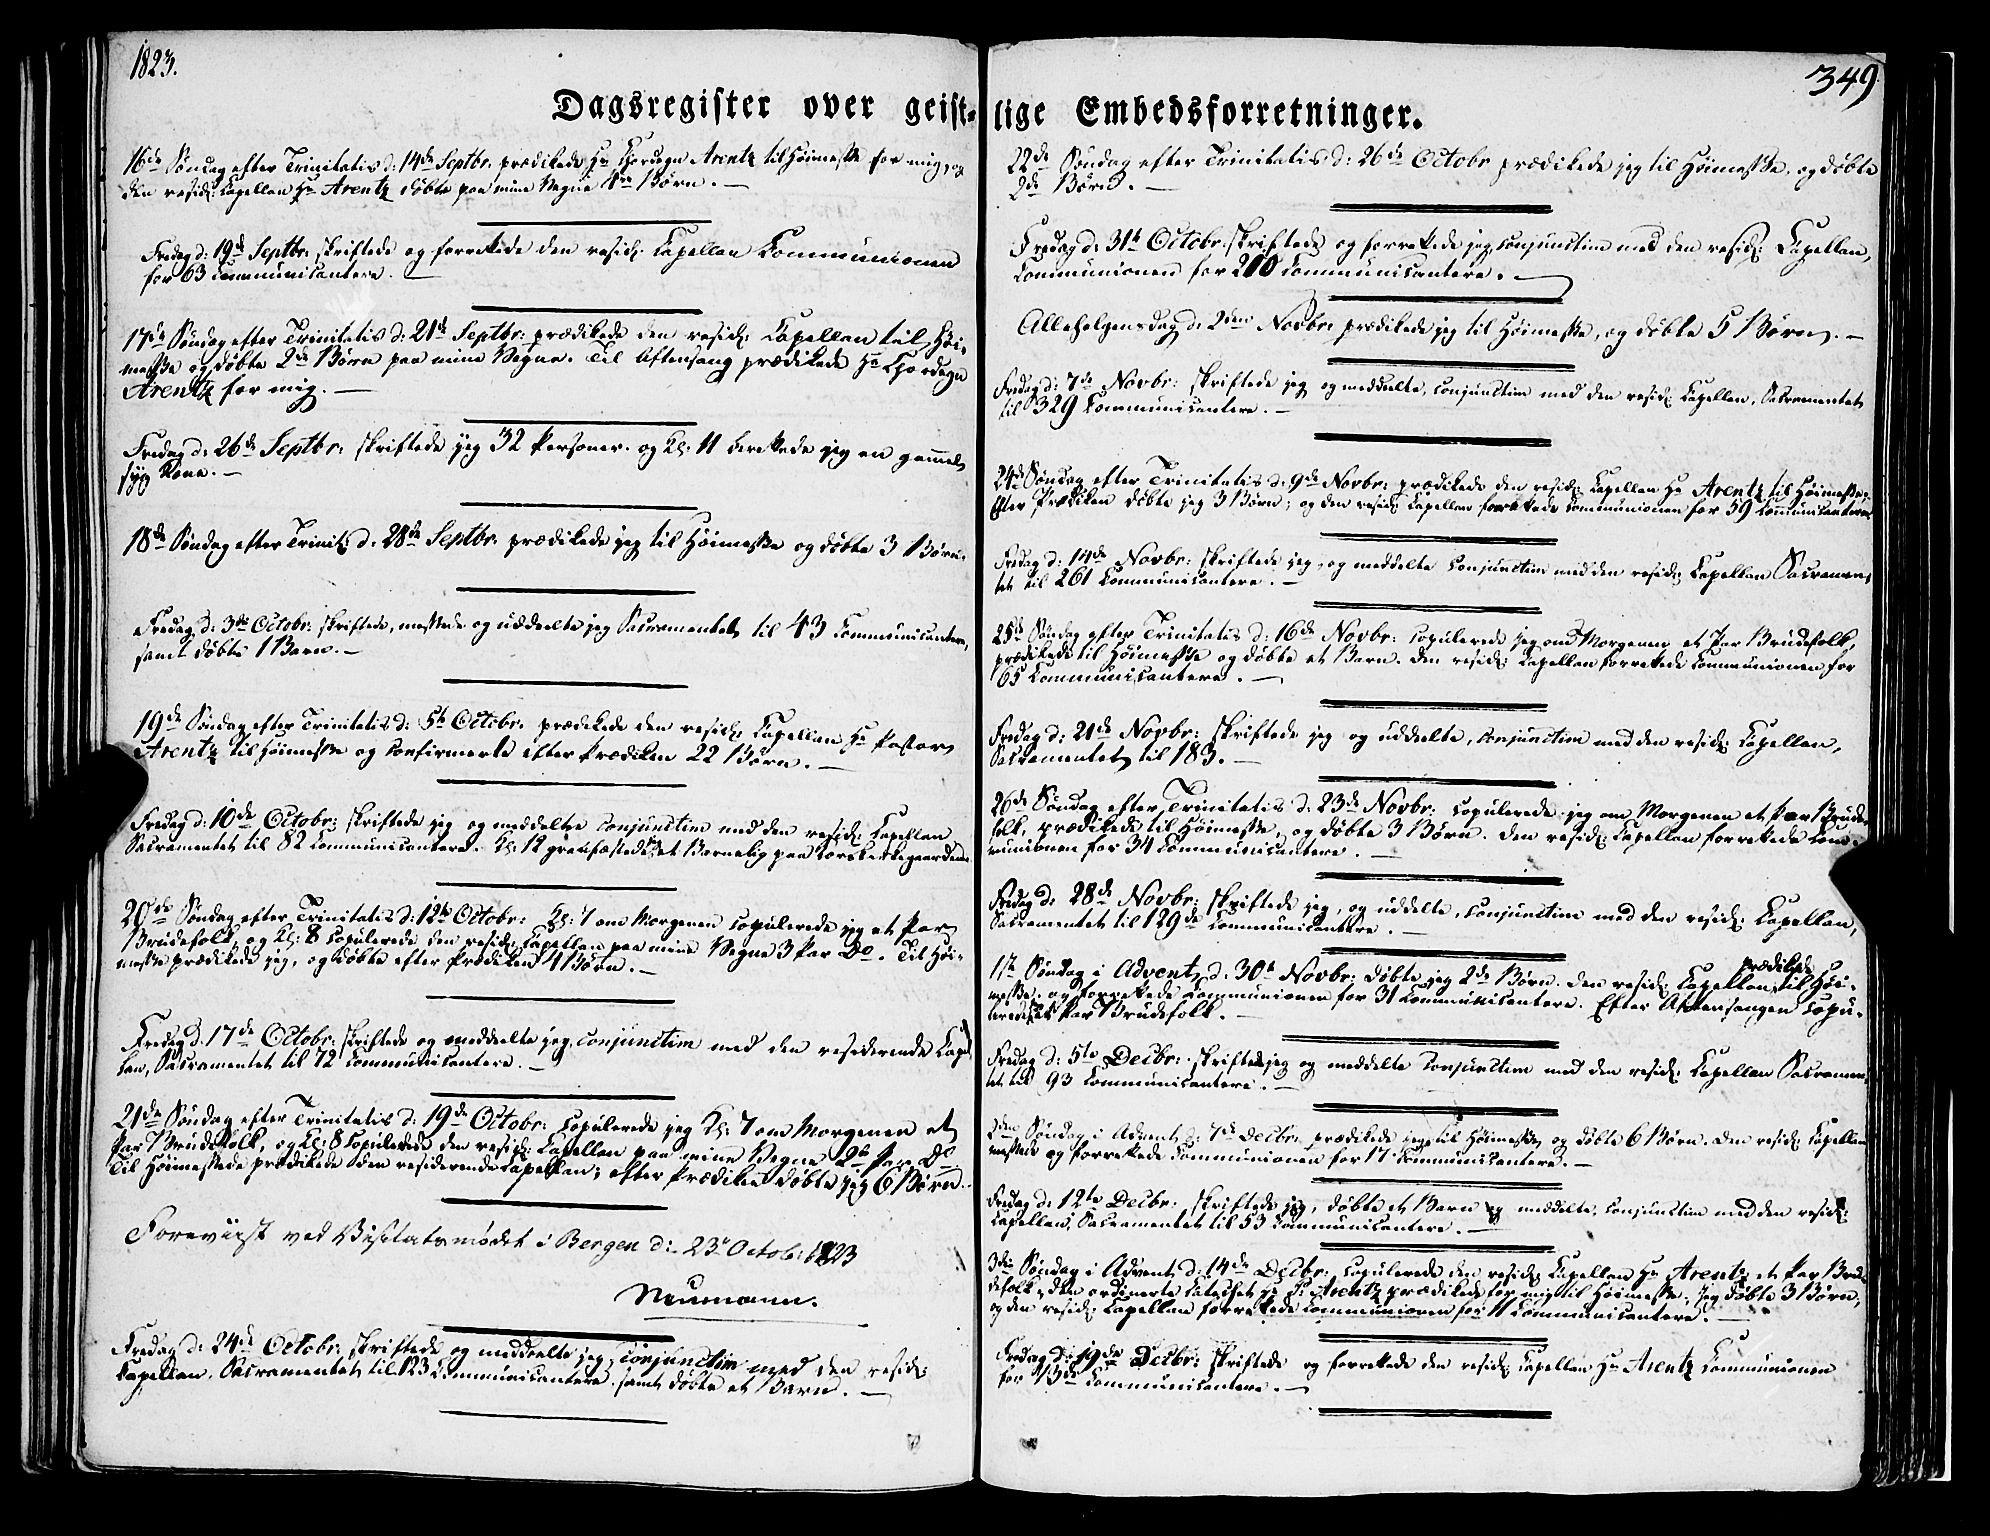 1823.
349
Dagsregister over geist-
lige Embedsforretninger.
16de Søndag efter Trinitatis d: 14de Septbr: prædikede Hr Chordegn Arentz til Høimesse for mig, og
den resid: Capellan Hr Arentz døbte paa mine Vegne Børn. —
Fredag d: 19de Septbr: skriftede og forrettede den resid: Capellan Communionen
for 63 Communicantere. —
17de Søndag efter Trinitatis d: 21de Septbr: prædikede den resid: Capellan til Høi-
messe og døbte 2de Børn paa mine Vegne. Til Aftensang prædikede Hr Chordegn
Arentz for mig. —
Fredag d: 26de Septbr: skriftede jeg 32 Personer. og Kl: 11 berettede jeg en gammel
syg Kone. —
18de Søndag efter Trinit: d: 28de Septbr: prædikede jeg til Høimesse og døbte 3 Børn.
Fredag d: 3die Octobr: skriftede, messede og uddeelte jeg Sacramentet til 43 Communicantere,
samt døbte 1 Barn. —
19de Søndag efter Trinitatis d: 5te Octobr: prædikede den resid: Capellan Hr Pastor
Arentz til Høimesse og confirmerte efter Prædiken 22 Børn. —
Fredag d: 10de Octobr: skriftede jeg og meddelte conjunctim med den resid: Capellan
Sacramentet til 82 Communicantere. Kl: 12 gravfæstede et Barnelig paa Korskirkegaarden.
20de Søndag efter Trinitatis d: 12te Octobr: Kl: 7 om Morgenen copulerede jeg et Par
Brudefolk, og Kl: 8 copulerede den resid: Capellan paa mine Vegne 3 Par Do. Til Høi-
messe prædikede jeg, og døbte efter Prædiken 4 Børn. —
Fredag d. 17de Octobr: skriftede og meddeelte jeg, conjunctim med den residerende Capel-
lan, Sacramentet til 72 Communicantere. —
21de Søndag efter Trinitatis d: 19de Octobr: copulerede jeg Kl: 7 om Morgenen et
Par Brudefolk, og Kl: 8 copulerede den resid: Capellan paa mine Vegne 2de Par Do
Til Høimesse prædikede den residerende Capellan; efter Prædiken døbte jeg 6 Børn.
Foreviist ved Visitatsmødet i Bergen d: 23 Octob: 1823
Neumann.
Fredag d: 24de Octobr: skriftede og meddeelte jeg, conjunctim med den resid:
Capellan, Sacramentet til 123 Communicantere, samt døbte et Barn. —
22de Søndag efter Trinitatis d: 26de Octobr prædikede jeg til Høimesse, og døbte
2de Børn. —
Fredag d: 31te Octobr: skriftede og forrettede jeg conjunctim med den resid: Capellan,
Communionen for 210 Communicantere. —
Allehelgensdag d: 2den Novbr: prædikede jeg til Høimesse, og døbte 5 Børn. —
Fredag d: 7de Novbr: skriftede jeg og meddeelte, conjunctim med den resid: Capellan, Sacramentet
til 329 Communicantere. —
24de Søndag efter Trinitatis d: 9de Novbr: prædikede den resid: Capellan Hr Arentz til Høimesse.
Efter Prædiken døbte jeg 3 Børn; og den resid: Capellan forrettede Communionen for 59 Communicantere
Fredag d: 14de Novbr: skriftede jeg, og meddelte conjunctim med den resid: Capellan Sacramen-
tet til 261 Communicantere. —
25de Søndag efter Trinitatis d: 16de Novbr: copulerede jeg om Morgenen et Par Brudefolk,
prædikede til Høimesse og døbte et Barn. Den resid: Capellan forrettede Communionen for
65 Communicantere. —
Fredag d: 21de Novbr: skriftede jeg og uddelte, conjunctim med den resid: Capellan,
Sacramentet til 183. —
26de Søndag efter Trinitatis d: 23de Novbr: copulerede jeg om Morgenen et Par Brude-
folk, prædikede til Høimesse, og døbte 3 Børn. Den resid: Capellan forrettede Com-
munionen for 34 Communicantere. —
Fredag d: 28de Novbr: skriftede jeg, og uddelte, conjunctim med den resid: Capellan,
Sacramentet til 129de Communicantere. —
1ste Søndag i Advent d: 30te Novbr: døbte jeg 2de Børn. Den resid: Capellan prædikede til Høi-
messe, og forrettede Communionen for 31 Communicantere. Efter Aftensangen copu-
lerede et Par Brudefolk. —
Fredag d: 5te Decbr: skriftede jeg og meddelte conjunctim med den resid: Capellan Sacramen-
tet til 93 Communicantere. —
2den Søndag i Advent d: 7de Decbr: prædikede jeg til Høimesse og døbte 6 Børn. Den resid: Capellan
messede og forrettede Communionen for 17 Communicantere. —
Fredag d: 12te Decbr: skriftede jeg, døbte et Barn og meddelte, conjunctim med den resid:
Capellan, Sacramentet til 53 Communicantere. —
3die Søndag i Advent d: 14de Decbr: copulerede den resid: Capellan Hr Arentz et Par Bru-
defolk, den ordinerte Catechet Hr Arentz prædikede for mig til Høimesse, jeg døbte 3 Børn,
og den resid: Capellan forrettede Communionen for 11 Communicantere. —
Fredag d: 19de Decbr: skriftede og forrettede den resid: Capellan Hr Arentz Communionen
for Communicantere. —